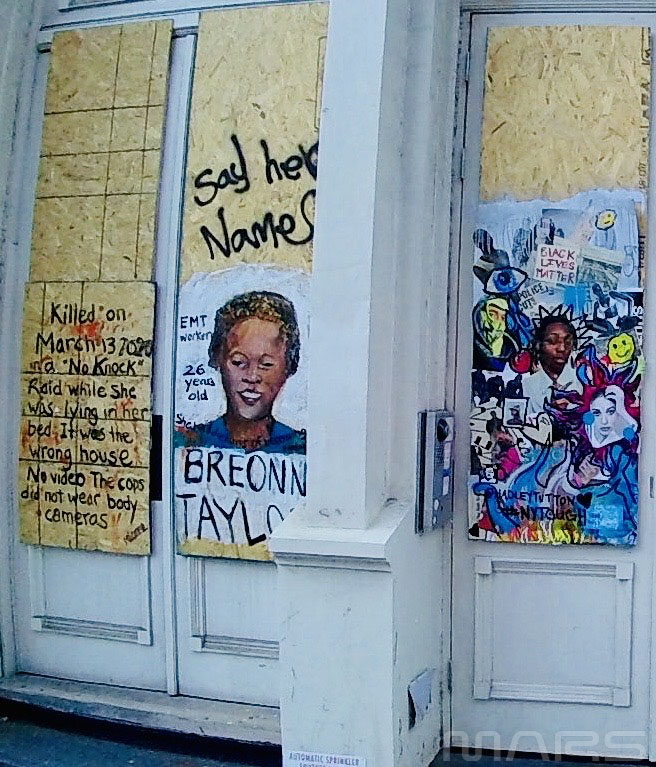 Killed on
March 13 2020
in a "No Knock"
Raid while she
was lying in her
bed. It was the
wrong house.
No video The cops
did not wear body
cameras!!
Say her
Names
EMT
worker
26
years
old
BREONN
TAYLO
BLACK
LIVES
MATTER
POLICE
#NYTOUGH
AUTOMATIC SPRINKLER
MARS